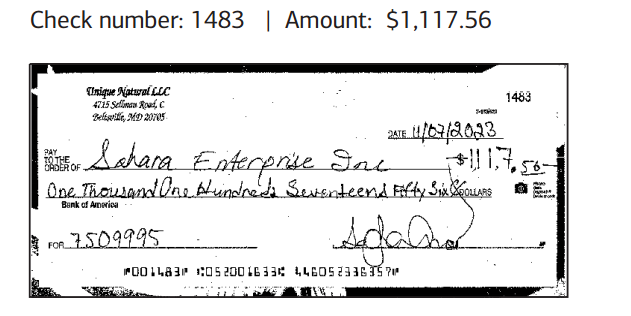 Check number: 1483 | Amount: $1,117.56
Unique Natural LLC
4715 Sellman Road, C
Beltsville, MD 20705
1483
DATE 11/07/2023
PAY TO THE ORDER OF Sahara Enterprise Inc $1117.56
One Thousand One Hundred Seventeen & Fifty Six DOLLARS
Bank of America
FOR 7509995